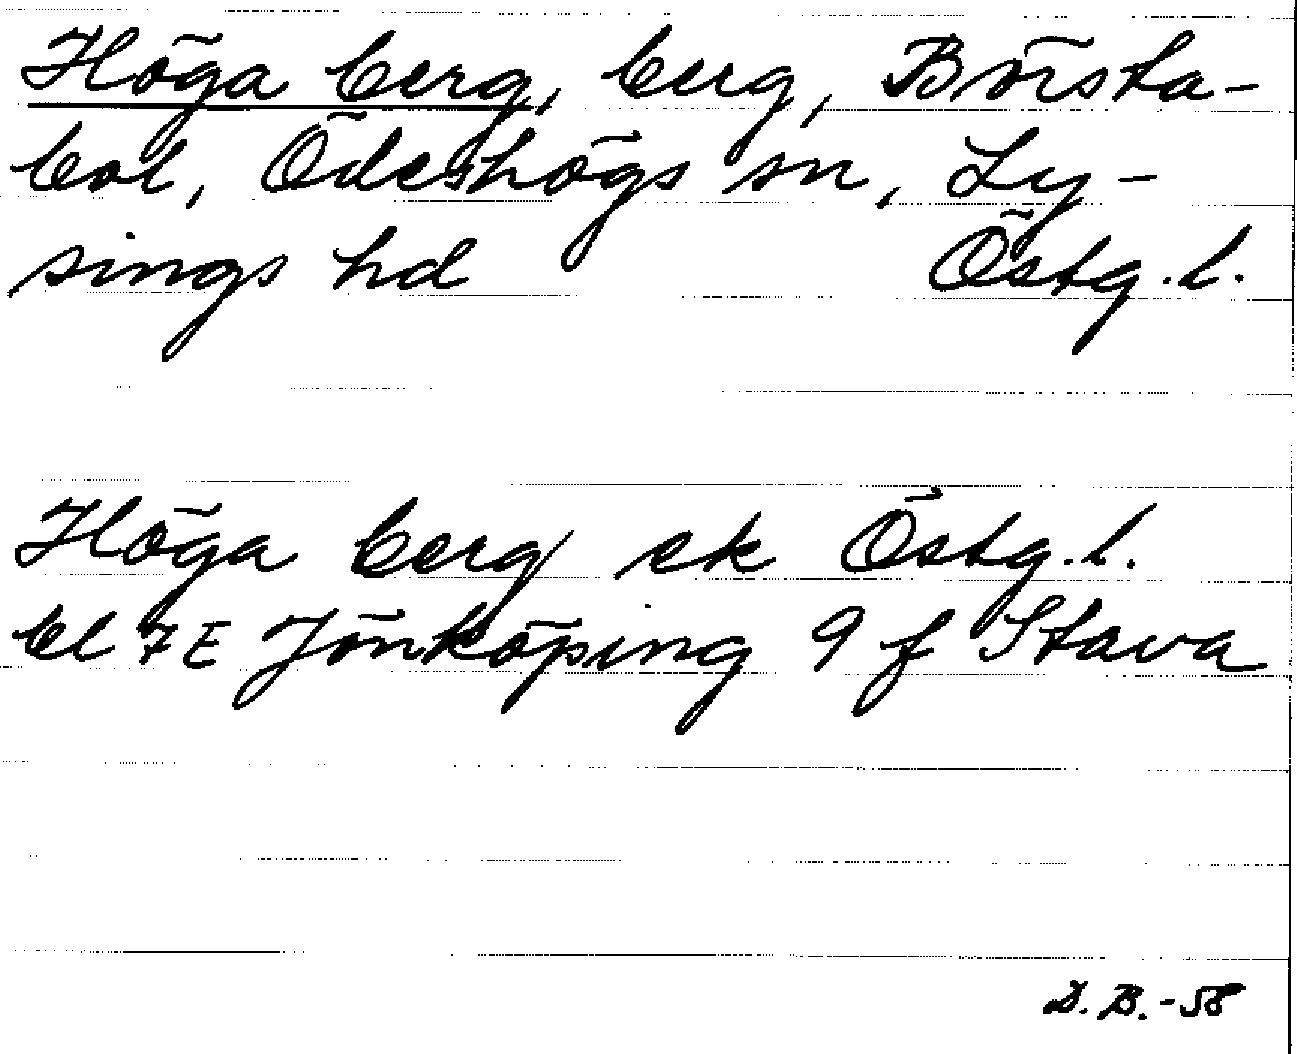 Höga berg, berg, Börsta-
bol, Ödeshögs sn, Ly-
sings hd Östg. l.
Höga berg ek Östg. l.
bl 7E Jönköping 9 f Stava
D. B. - 58